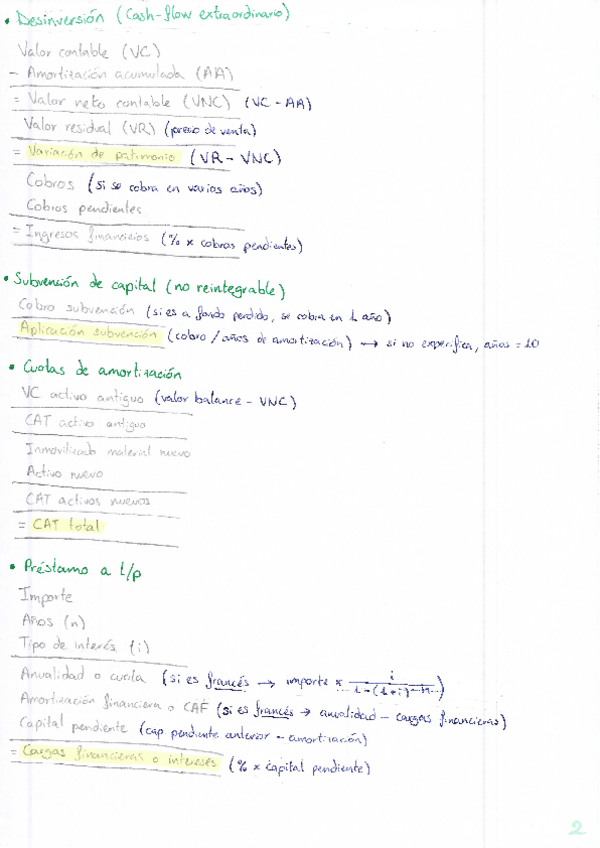 • Desinversión (Cash-flow extraordinario)
Valor contable (VC)
- Amortización acumulada (AA)
= Valor neto contable (VNC) (VC - AA)
Valor residual (VR) (precio de venta)
= Variación de patrimonio (VR - VNC)
Cobros (si se cobra en varios años)
Cobros pendientes
= Ingresos financieros (% x cobros pendientes)
• Subvención de capital (no reintegrable)
Cobro subvención (si es a fondo perdido, se cobra en 1 año)
Aplicación subvención (cobro / años de amortización) → si no especifica, años = 10
• Cuotas de amortización
VC activo antiguo (valor balance - VNC)
CAT activo antiguo
Inmovilizado material nuevo
Activo nuevo
CAT activos nuevos
= CAT total
• Préstamo a l/p
Importe
Años (n)
Tipo de interés (i)
Anualidad o cuota (si es francés → importe x i / 1-(1+i)^-n)
Amortización financiera o CAF (si es francés → anualidad - cargas financieras)
Capital pendiente (cap. pendiente anterior - amortización)
= Cargas financieras o intereses (% x capital pendiente)
2